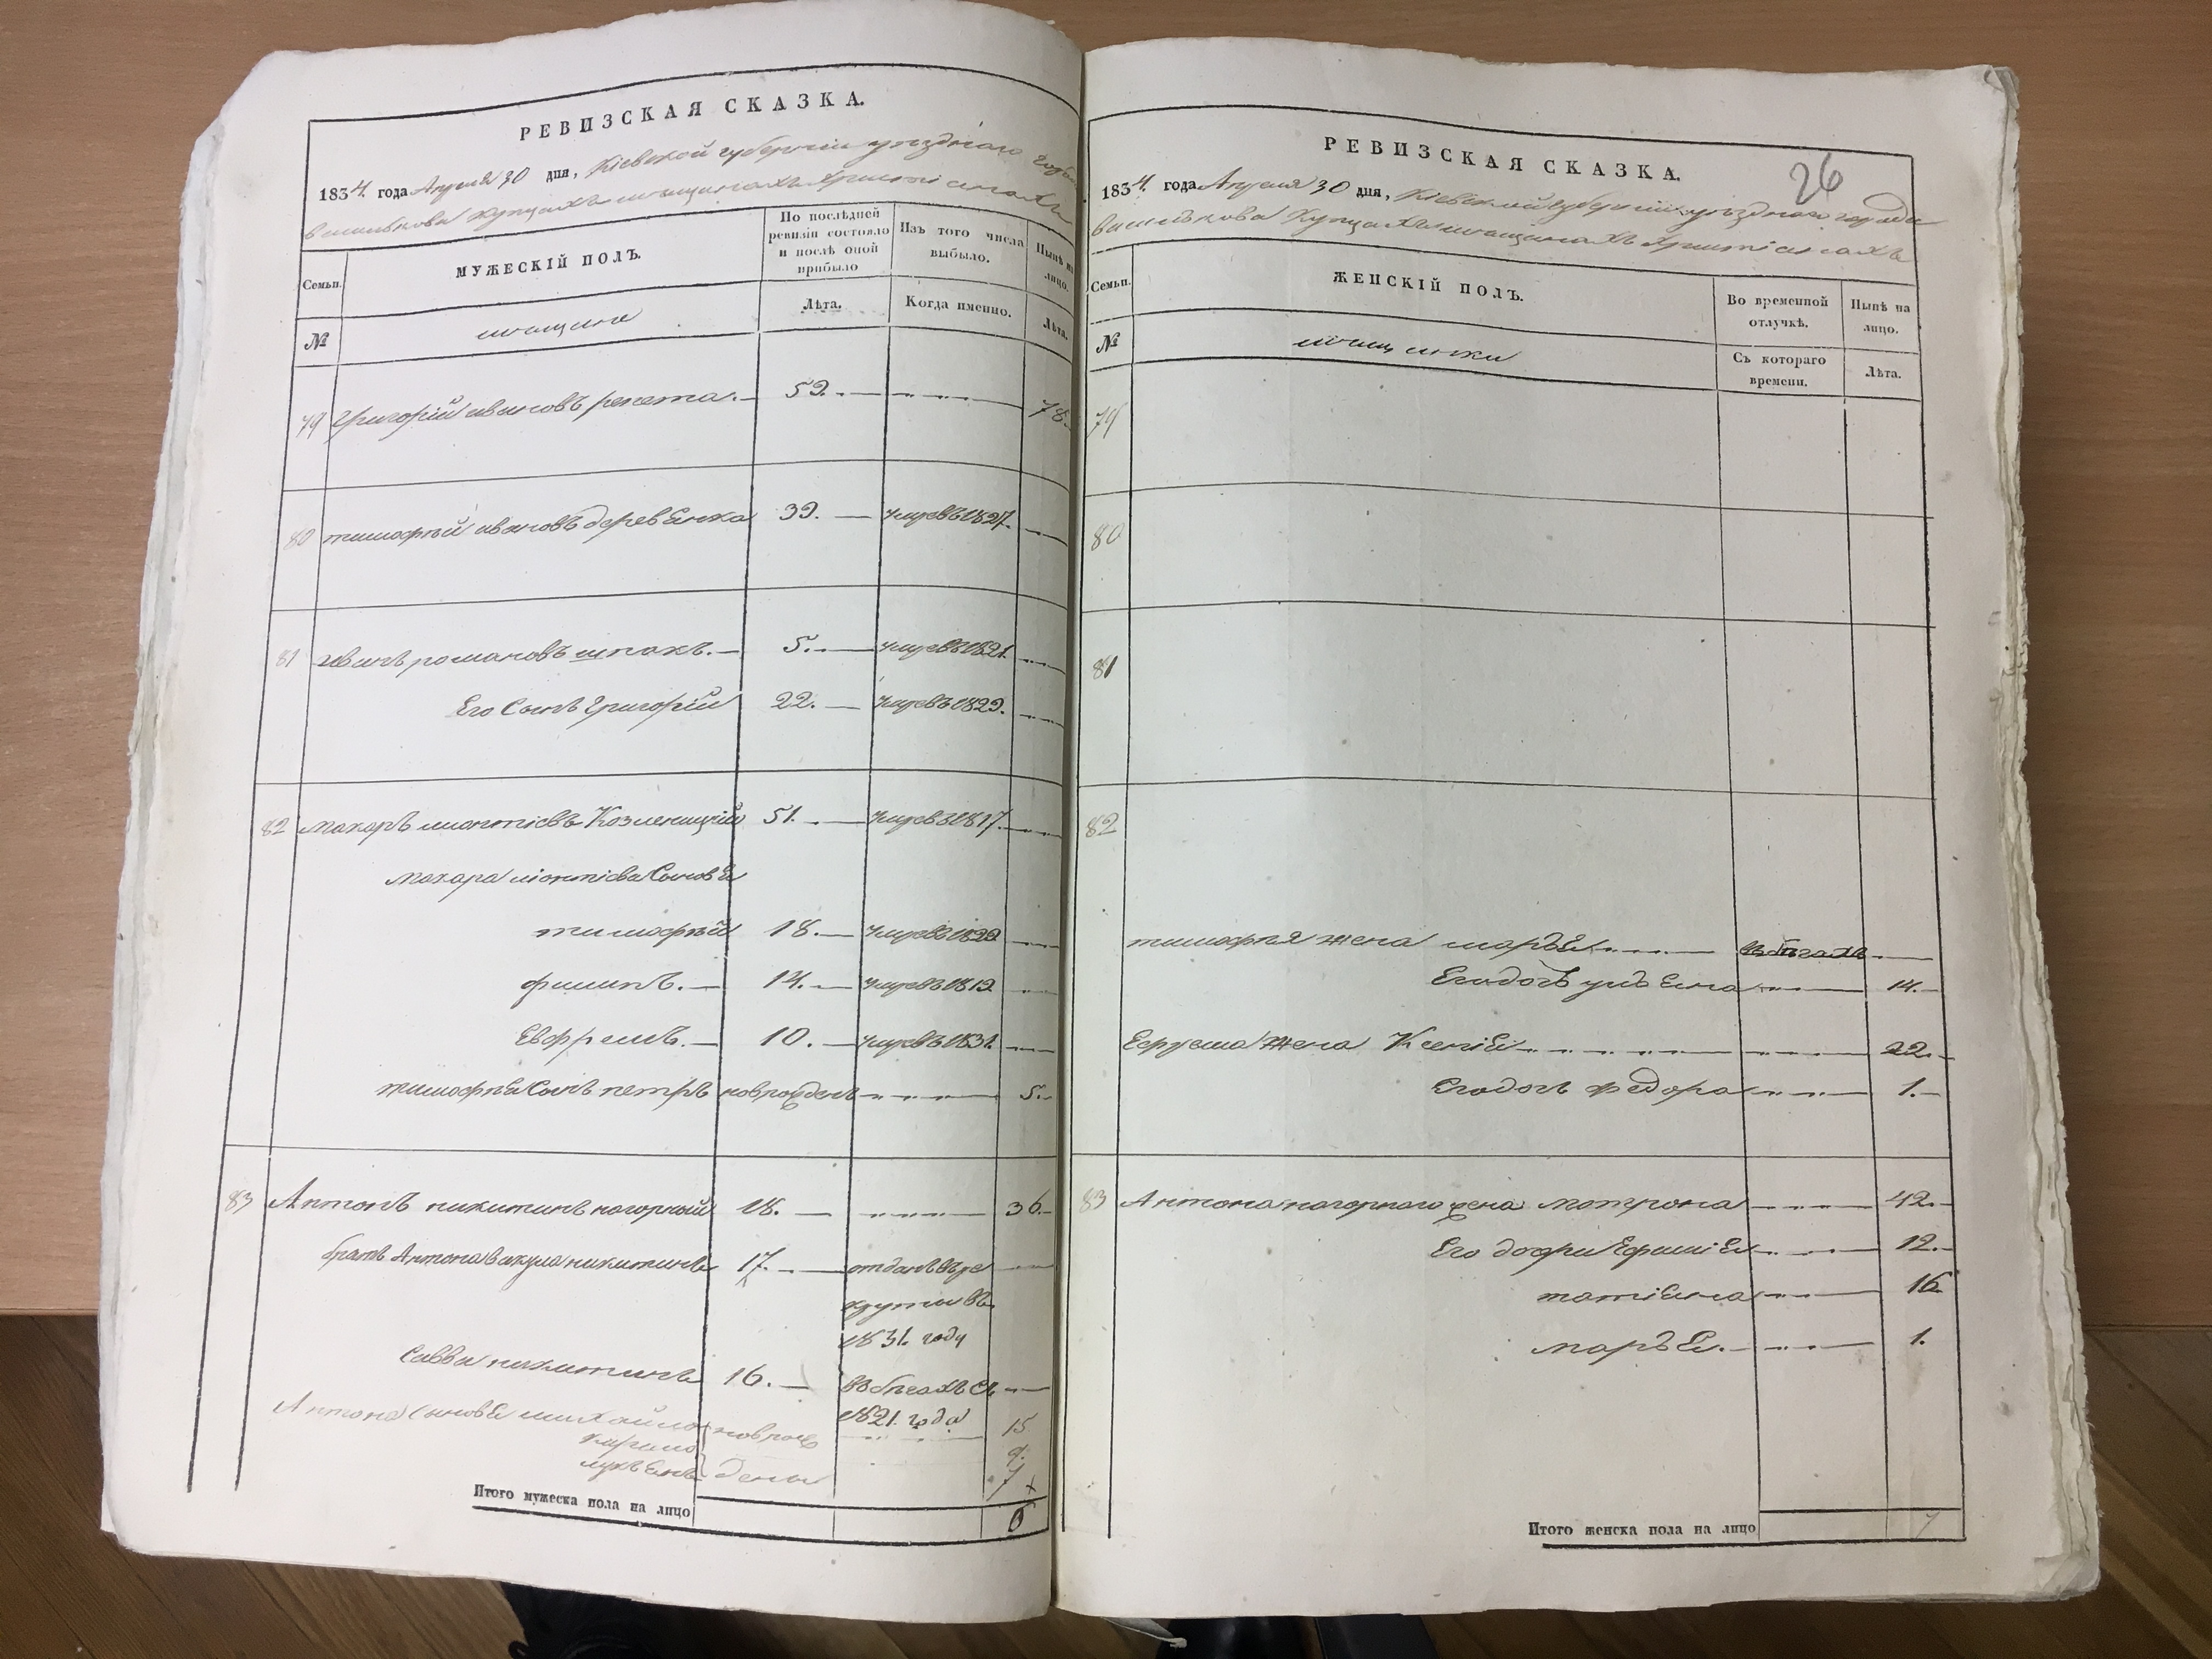 РЕВИЗСКАЯ СКАЗКА.
1834. года Апреля 30 дня, Кіевской губерніи уезднаго
василькова купцахъ мещанахъ христіанахъ
Семьи.
МУЖЕСКІЙ ПОЛЪ.
По послѣдней ревизіи состояло и послѣ оной прибыло
Изъ того числа выбыло.
Нынѣ на лицо.
№
мещане
Лѣта.
Когда именно.
Лѣта.
79 Григорій ивановъ репета. 52. 78.
80 тимофѣй ивановъ деревЕнка 39. умре въ 1827.
81 иванъ романовъ шпакъ. 5. умре въ 1821.
Его Сынъ Григорій 22. умре въ 1829.
82 макаръ лионтіевъ 51. умре въ 1817.
макара ліонтіева СыновЕ
тимофѣй 18. умре въ
филипъ. 14. умре въ 1819
Евфремъ. 10. умре въ 1831.
тимофѣя Сынъ петръ новрожденъ 5.
83 Антонъ никитинъ нагорный 18. 36.
братъ Антона вакула никитинъ 17. отданъ въ ре
круты въ
1831. году
Савва никитинъ 16. въ бѣгахъ съ
1821. года
Антона СыновЕ михайло новрож 15
кирило 9.
лукъЕнъ дены
Итого мужеска пола на лицо 6
РЕВИЗСКАЯ СКАЗКА.
26
1834. года Апреля 30 дня, Кіевской губерніи уезднаго города
василькова Купцахъ мещанахъ христіанахъ
Семьи.
ЖЕНСКІЙ ПОЛЪ.
Во временной отлучкѣ.
Нынѣ на лицо.
№
мещанки
Съ котораго времени.
Лѣта.
79
80
81
82
тимофея жена маръЕ въ бѣгахъ
Егодочь улъЕна 14.
Ефрема жена КсеніЕ 22.
Егодочь Федора 1.
83 Антона нагорнаго жена мотрона 42.
Его дочери ЕфиміЕ 12.
татіЕна 16
маръЕ. 1.
Итого женска пола на лицо 7